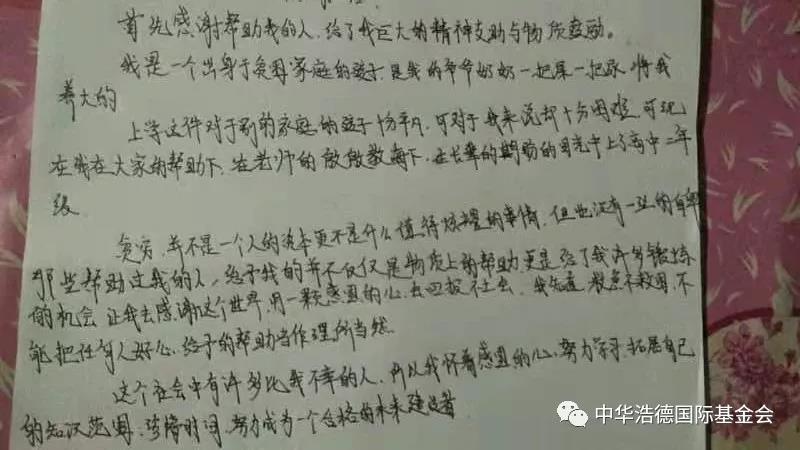 首先感谢帮助我的人,给了我巨大的精神支助与物质鼓励。
我是一个出身于贫困家庭的孩子,是我的爷爷奶奶一把屎一把尿,将我
养大的
上学这件对于别的家庭的孩子十分平凡,可对于我来说却十分困难,可现
在我在大家的帮助下,在老师的敦敦教诲下,在长辈的期盼的目光中上了高中二年
级
贫穷,并不是一个人的资本更不是什么值得炫耀的事情,但也没有一丝的自卑
那些帮助过我的人,给予我的并不仅仅是物质上的帮助更是给了我许多锻炼
的机会,让我去感谢这个世界,用一颗感恩的心,去回报社会。我知道,救急不救困,不
能把任何人好心,给予的帮助当作理所当然。
这个社会中有许多比我不幸的人,所以我怀着感恩的心,努力学习,拓展自己
的知识范围,珍惜时间,努力成为一个合格的未来建设者
中华浩德国际基金会